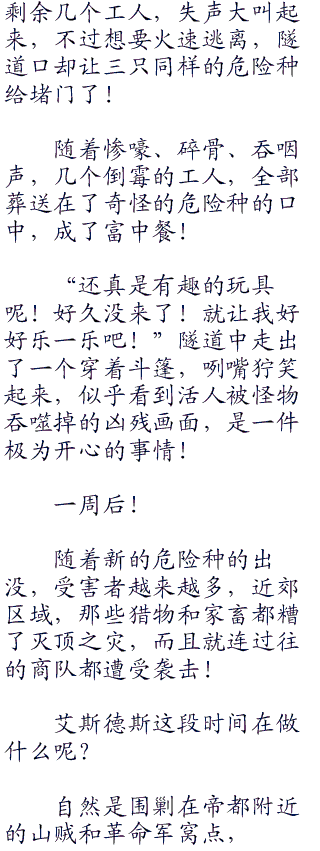 剩余几个工人，失声大叫起
来，不过想要火速逃离，隧
道口却让三只同样的危险种
给堵门了！
随着惨嚎、碎骨、吞咽
声，几个倒霉的工人，全部
葬送在了奇怪的危险种的口
中，成了富中餐！
“还真是有趣的玩具
呢！好久没来了！就让我好
好乐一乐吧！”隧道中走出
了一个穿着斗篷，咧嘴狞笑
起来，似乎看到活人被怪物
吞噬掉的凶残画面，是一件
极为开心的事情！
一周后！
随着新的危险种的出
没，受害者越来越多，近郊
区域，那些猎物和家畜都糟
了灭顶之灾，而且就连过往
的商队都遭受袭击！
艾斯德斯这段时间在做
什么呢？
自然是围剿在帝都附近
的山贼和革命军窝点，